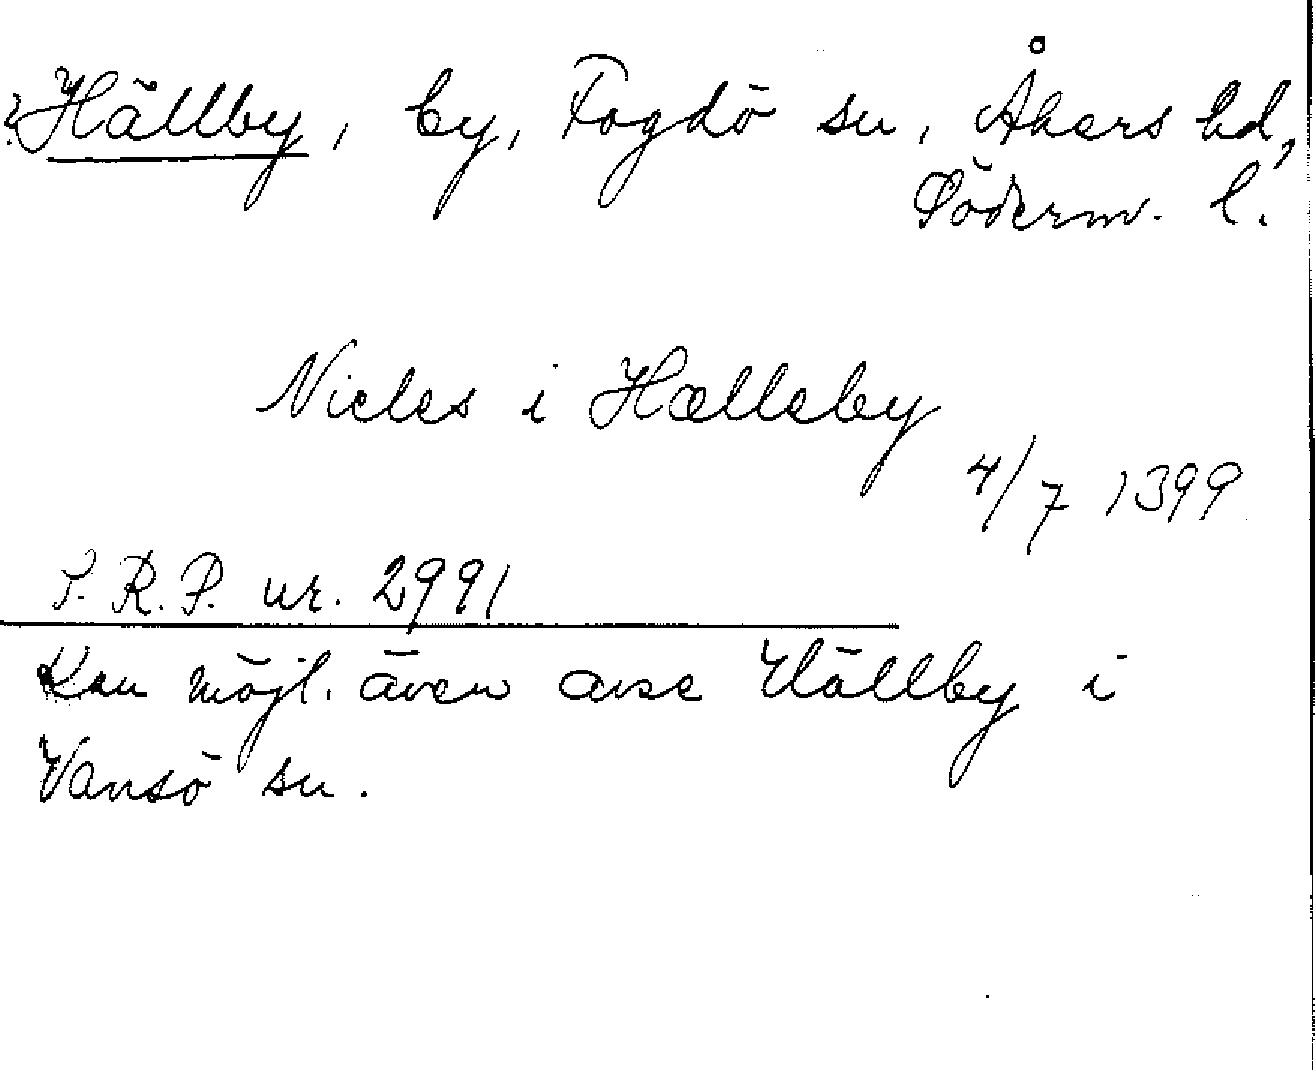 ? Hällby, by, Fogdö sn, Åkers hd,
Söderm. l.
Niclas i Hælleby
4/7 1399
S. R. P. nr. 2991
Kan möjl. även avse Hällby i
Vansö sn.